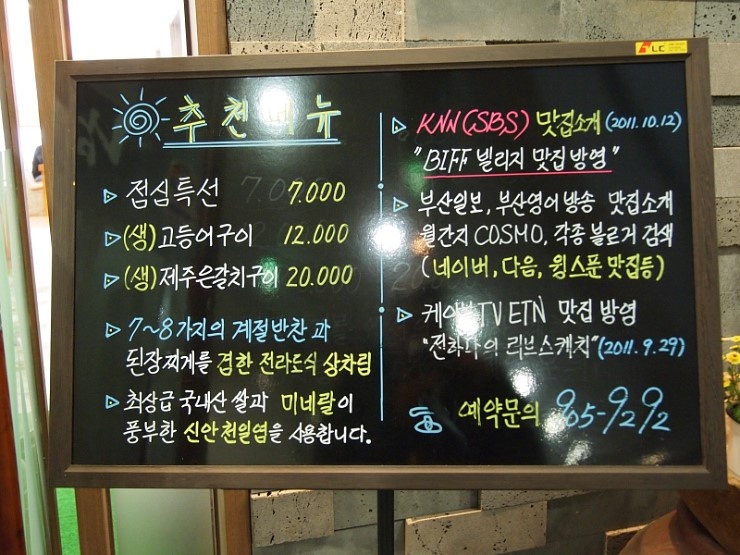 추천메뉴
▷ 점심특선 7.000
▷ (생)고등어구이 12.000
▷ (생)제주은갈치구이 20.000
▷ 7~8가지의 계절반찬과
된장찌개를 겸한 전라도식 상차림
▷ 최상급 국내산 쌀과 미네랄이
풍부한 신안천일염을 사용합니다.
▷ KNN(SBS) 맛집소개 (2011.10.12)
"BIFF 빌리지 맛집방영"
▷ 부산일보, 부산영어방송 맛집소개
월간지 COSMO, 각종 블로거 검색
(네이버, 다음, 윙스푼 맛집등)
▷ 케이블TV ETN 맛집 방영
"전하나의 리브스케치" (2011.9.29)
☎ 예약문의 965-9292
LC